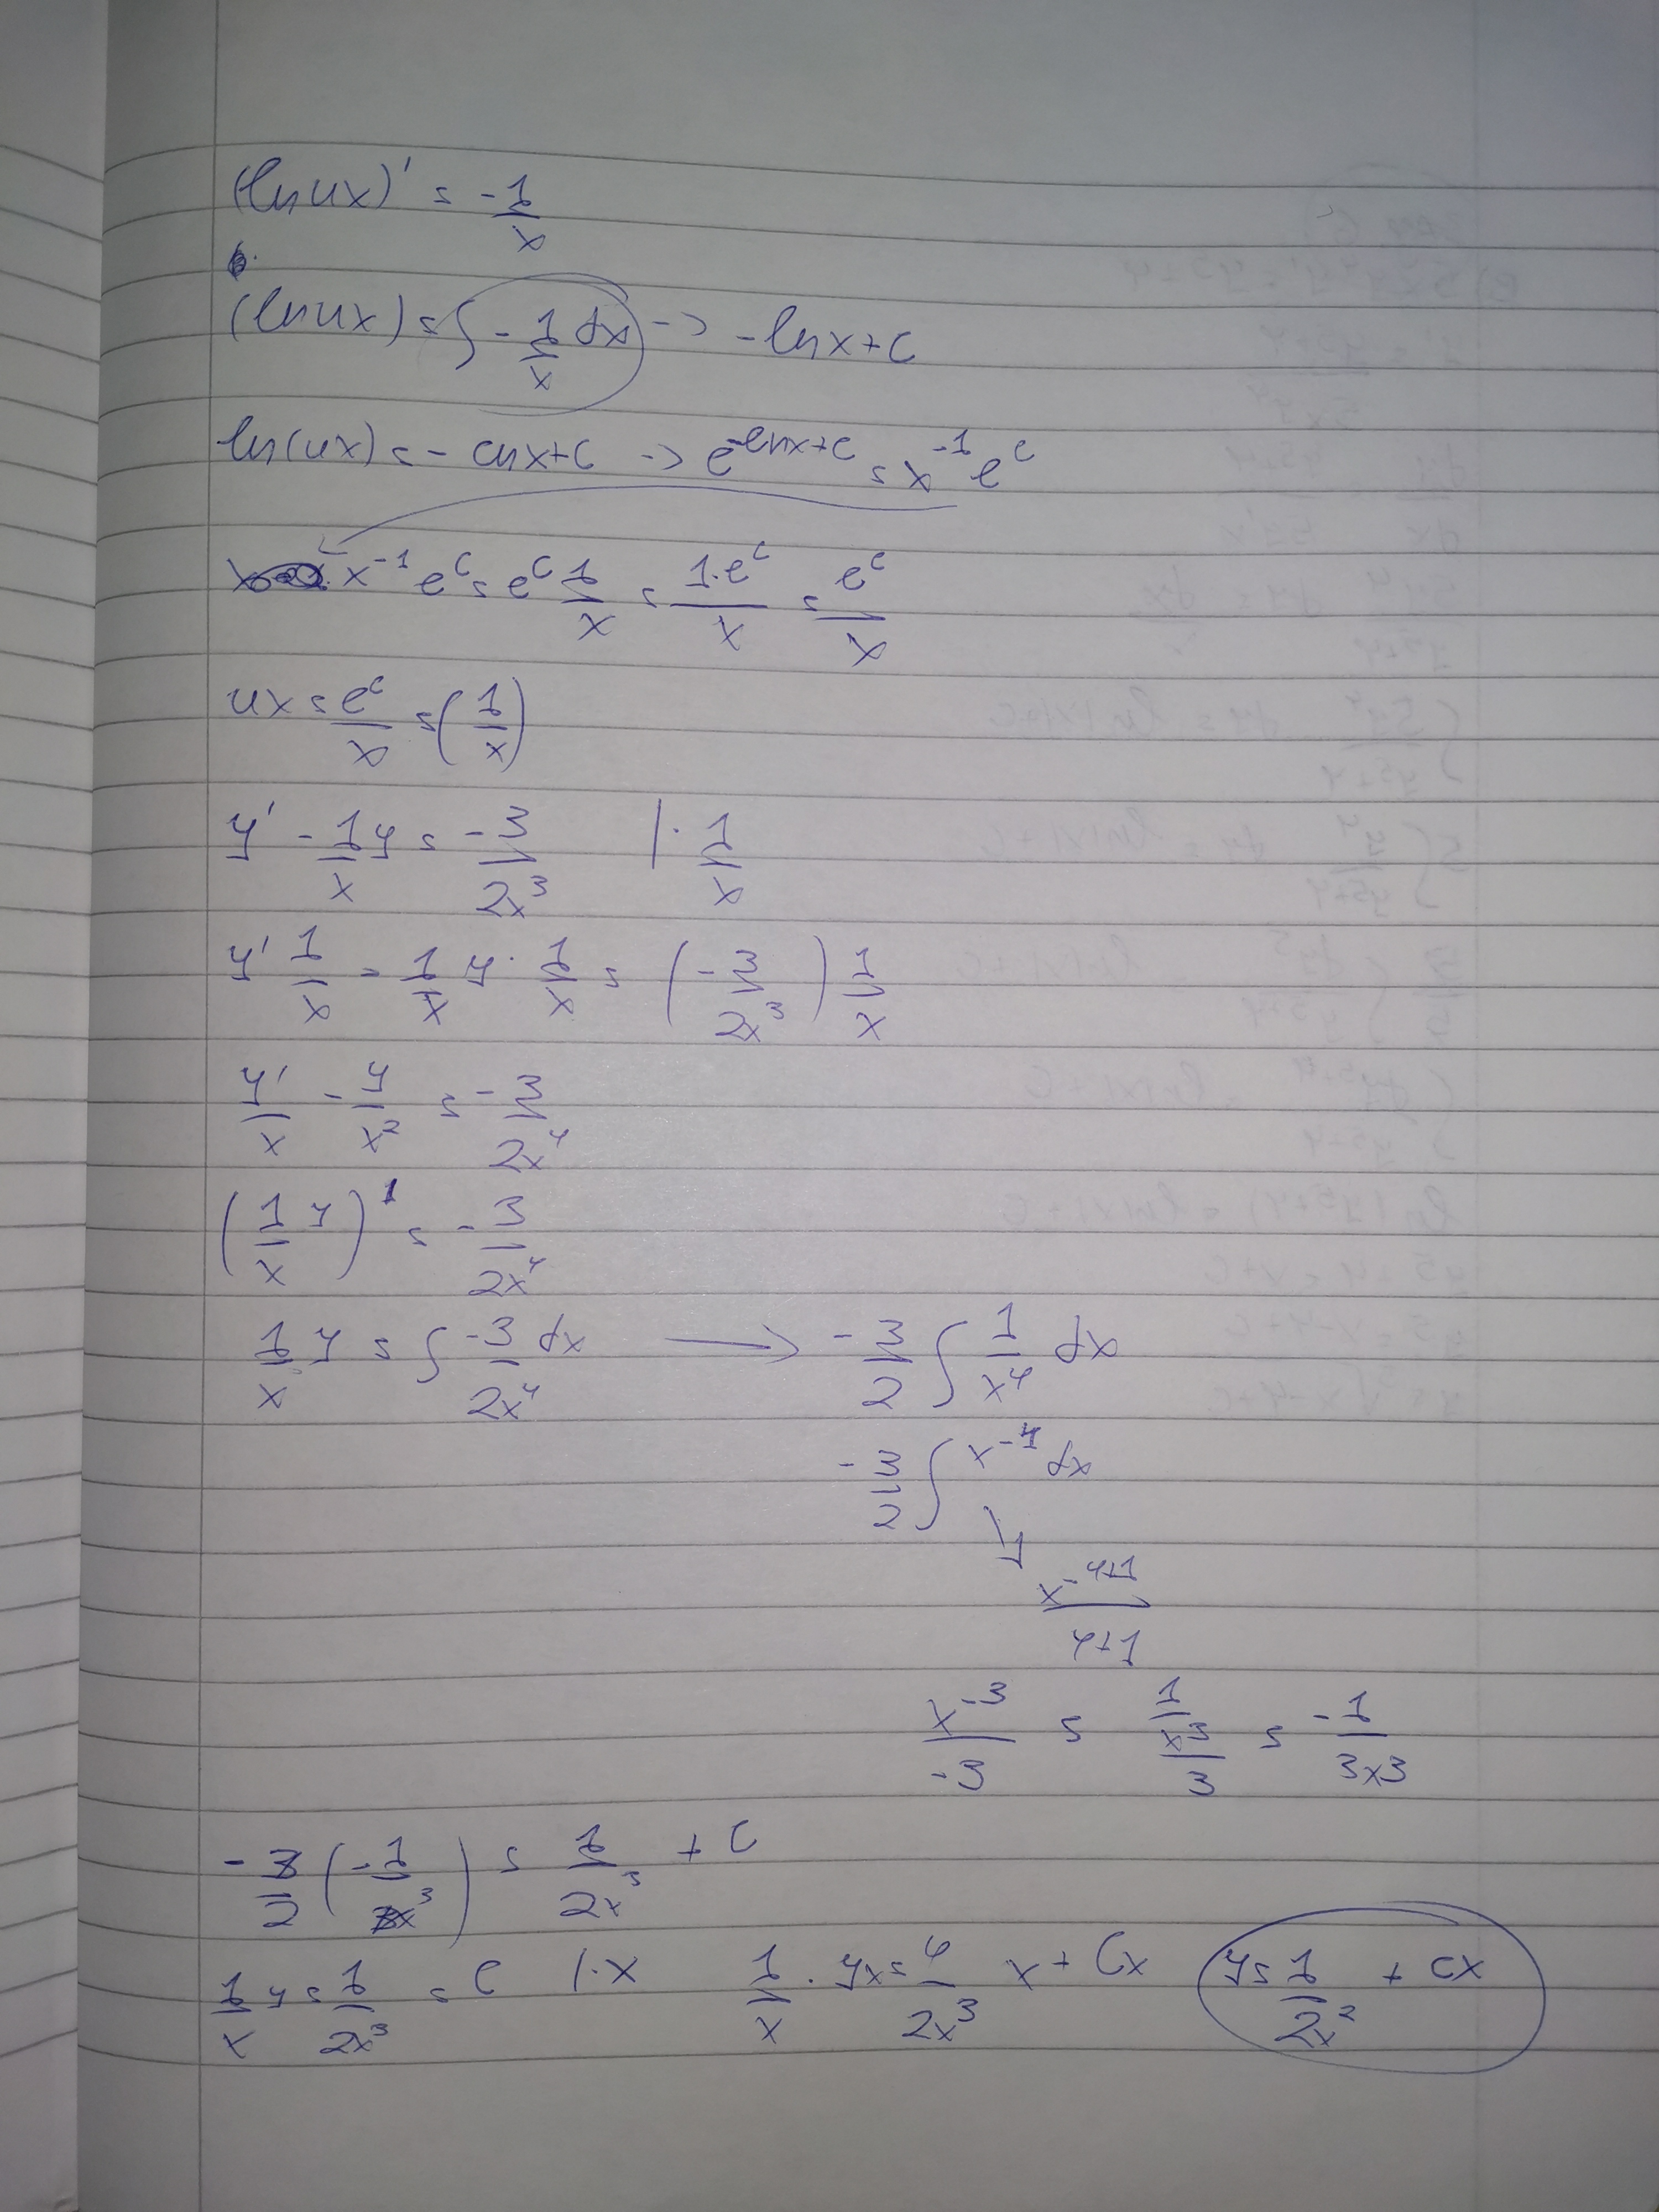 (ln ux)' = -1/x
(ln ux) = ∫ -1/x dx -> -ln x + c
ln(ux) = - ln x + c -> e^-ln x + c = x^-1 e^c
x^-1 e^c = e^c 1/x = 1·e^c/x = e^c/x
ux = e^c/x = (1/x)
y' - 1/x y = -3/2x^3 |· 1/x
y' 1/x - 1/x y · 1/x = (-3/2x^3) 1/x
y'/x - y/x^2 = -3/2x^4
(1/x y)' = -3/2x^4
1/x y = ∫ -3/2x^4 dx —> -3/2 ∫ 1/x^4 dx
-3/2 ∫ x^-4 dx
x^-4+1/4+1
x^-3/-3 = 1/x^3/3 = -1/3x3
-3/2 (-1/3x^3) = 1/2x^3 + C
1/x y = 1/2x^3 = C |·x 1/x · yx = /2x^3 x + Cx y = 1/2x^2 + cx